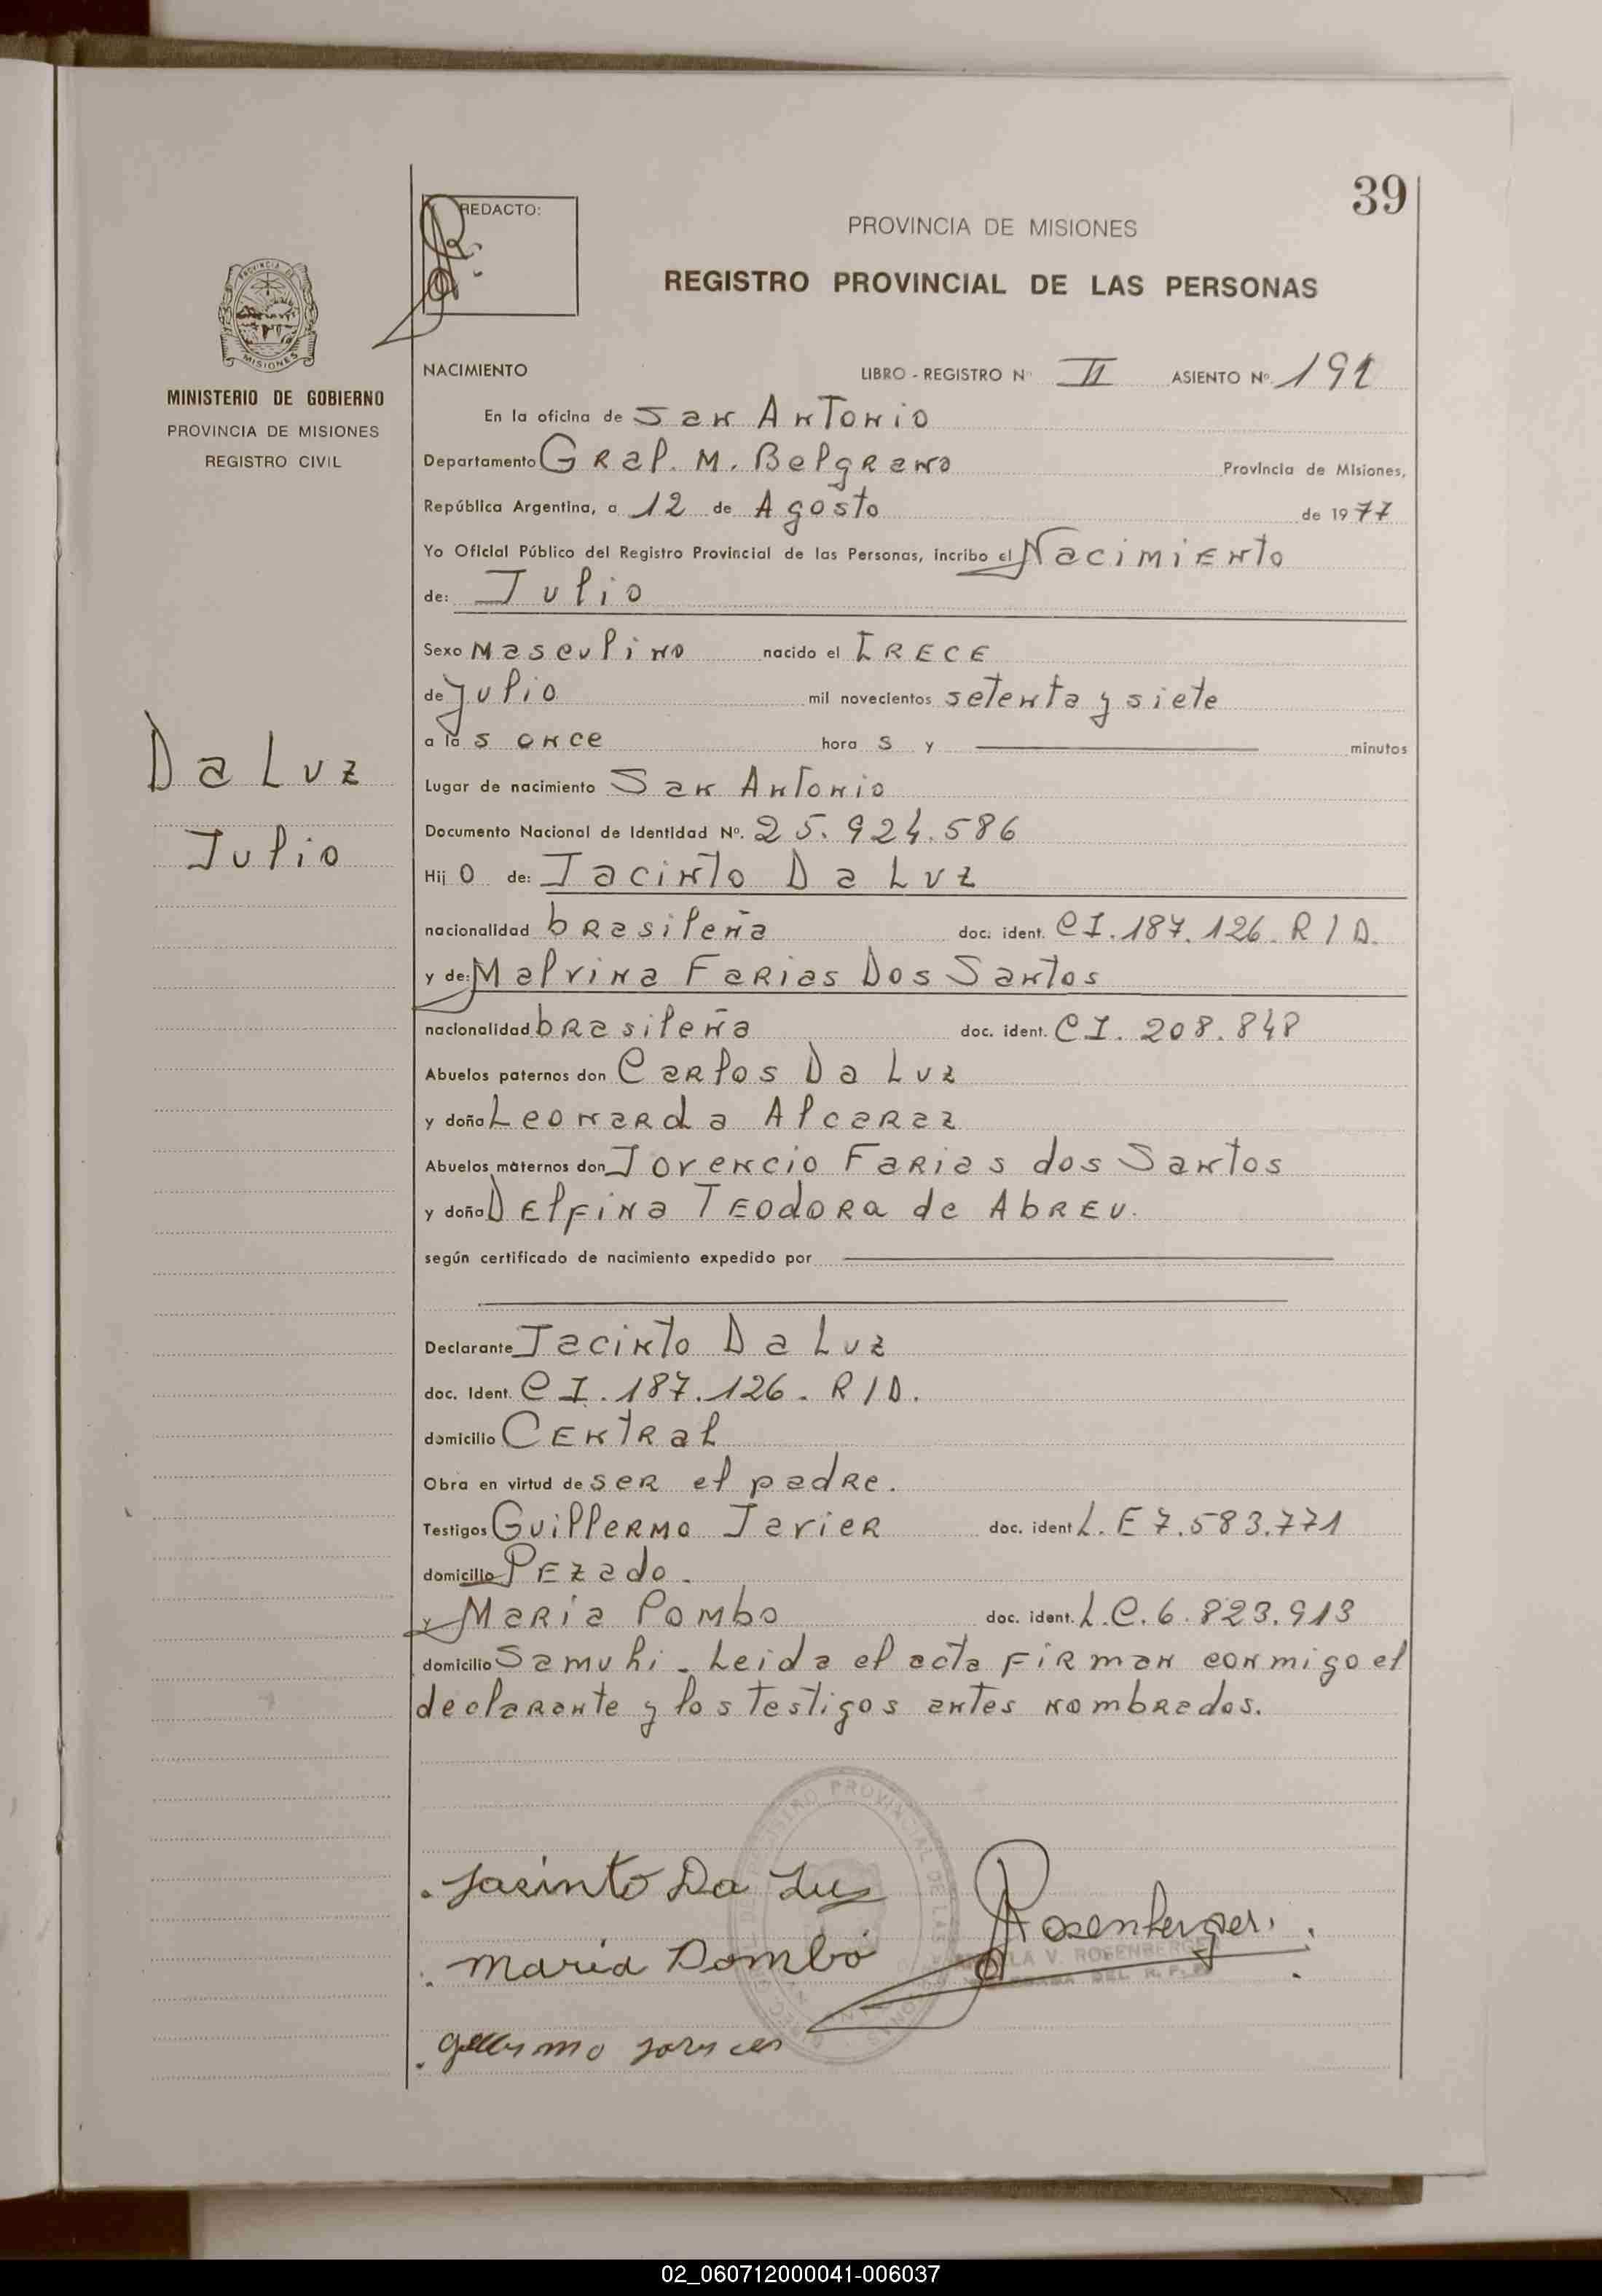 39
REDACTO:
PROVINCIA DE MISIONES
REGISTRO PROVINCIAL DE LAS PERSONAS
PROVINCIA DE
MISIONES
MINISTERIO DE GOBIERNO
PROVINCIA DE MISIONES
REGISTRO CIVIL
Da Luz
Julio
NACIMIENTO LIBRO - REGISTRO Nº II ASIENTO Nº. 191
En la oficina de San Antonio
Departamento Gral. M. Belgrano Provincia de Misiones,
República Argentina, a 12 de Agosto de 1977
Yo Oficial Público del Registro Provincial de las Personas, incribo el Nacimiento
de: Julio
Sexo Masculino nacido el TRECE
de Julio mil novecientos setenta y siete
a las once horas y minutos
Lugar de nacimiento San Antonio
Documento Nacional de Identidad Nº. 25.924.586
Hijo de: Jacinto Da Luz
nacionalidad brasileña doc. ident. CI. 187.126. R/D.
y de: Malvina Farias Dos Santos
nacionalidad brasileña doc. ident. CI. 208.848
Abuelos paternos don Carlos Da Luz
y doña Leonarda Alcaraz
Abuelos maternos don Jovencio Farias dos Santos
y doña Delfina Teodora de Abreu.
según certificado de nacimiento expedido por
Declarante Jacinto Da Luz
doc. Ident. CI. 187.126. R/D.
domicilio Central
Obra en virtud de ser el padre.
Testigos Guillermo Javier doc. ident L.E 7.583.771
domicilio Pezado.
y Maria Pombo doc. ident. L.C. 6.823.913
domicilio Samuhi. Leida el acta firman conmigo el
declarante y los testigos antes nombrados.
Jasinto Da Luz
Rosenberger
V. ROSENBERGER
DEL R. P.
Maria Pombo
REGISTRO PROVINCIAL DE LAS
02_060712000041-006037